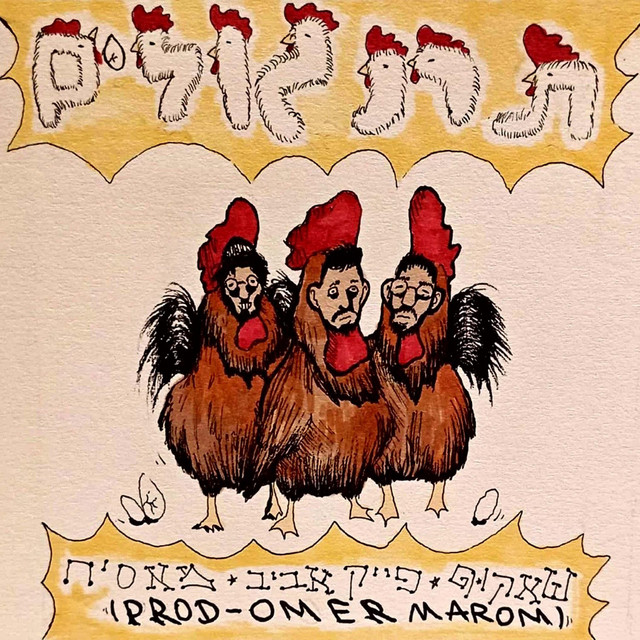 תרנגולים
שאקופ * פייק אביב * מאסיח
(PROD-OMER MAROM)